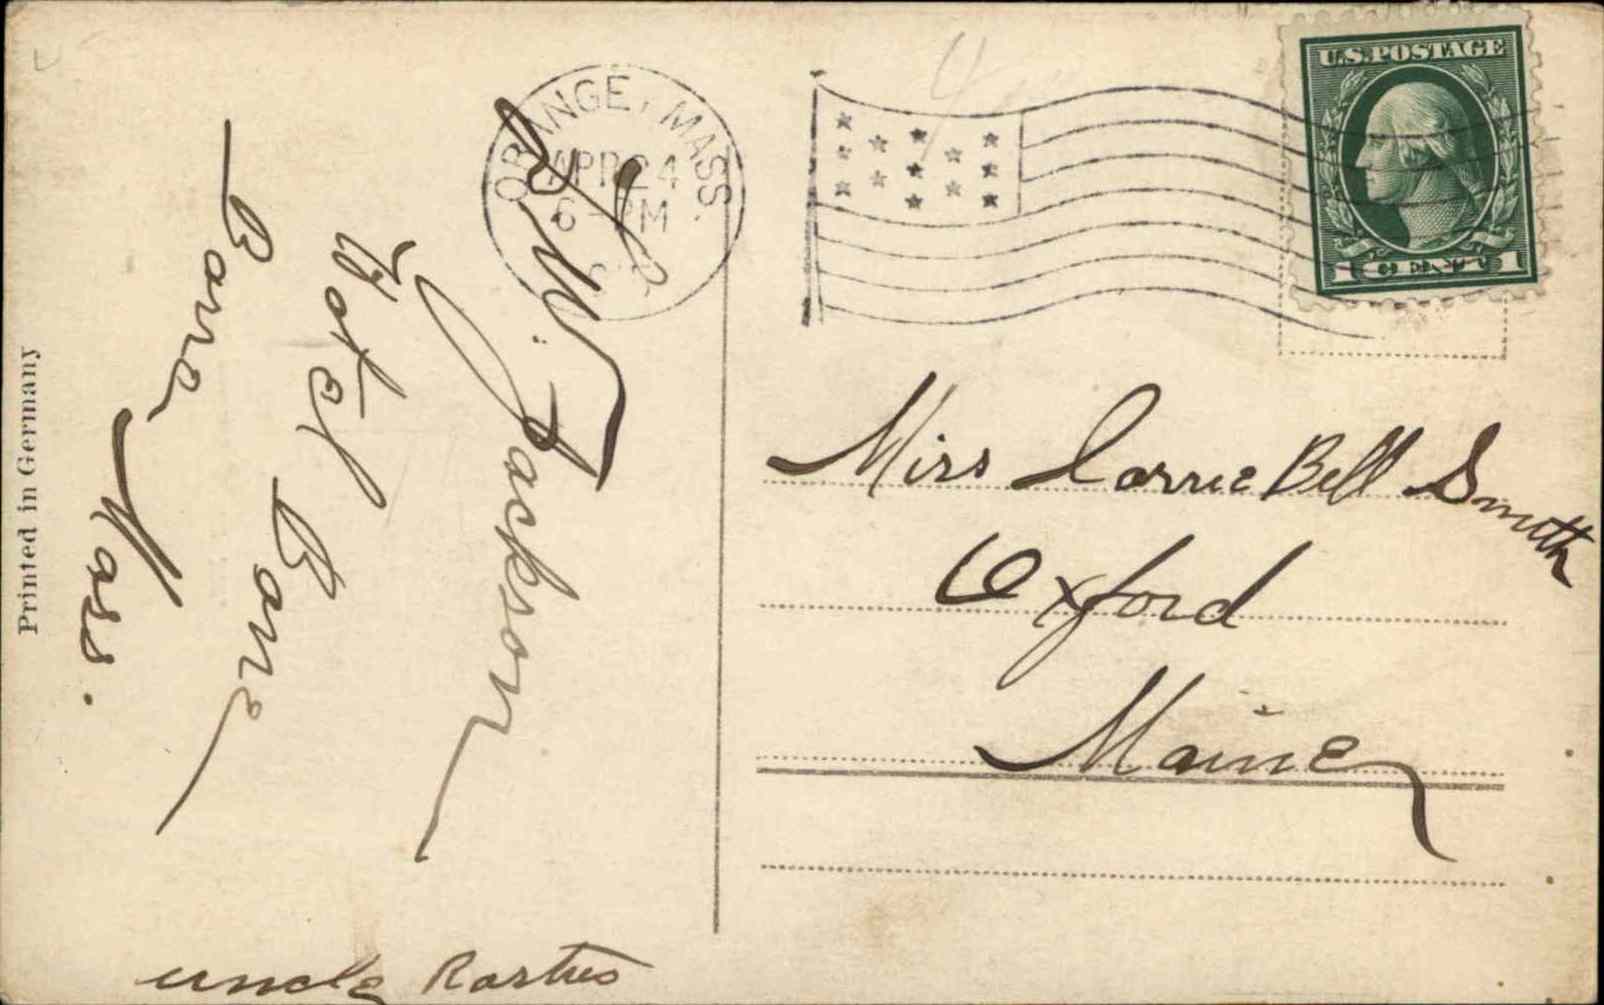 Printed in Germany
ORANGE, MASS.
APR 24
6-PM
U.S. POSTAGE
1 CENT 1
W. Jackson
Hotel Bane
Bane Mass.
Miss Carrie Bell Smith
Oxford
Maine
uncle Rastus